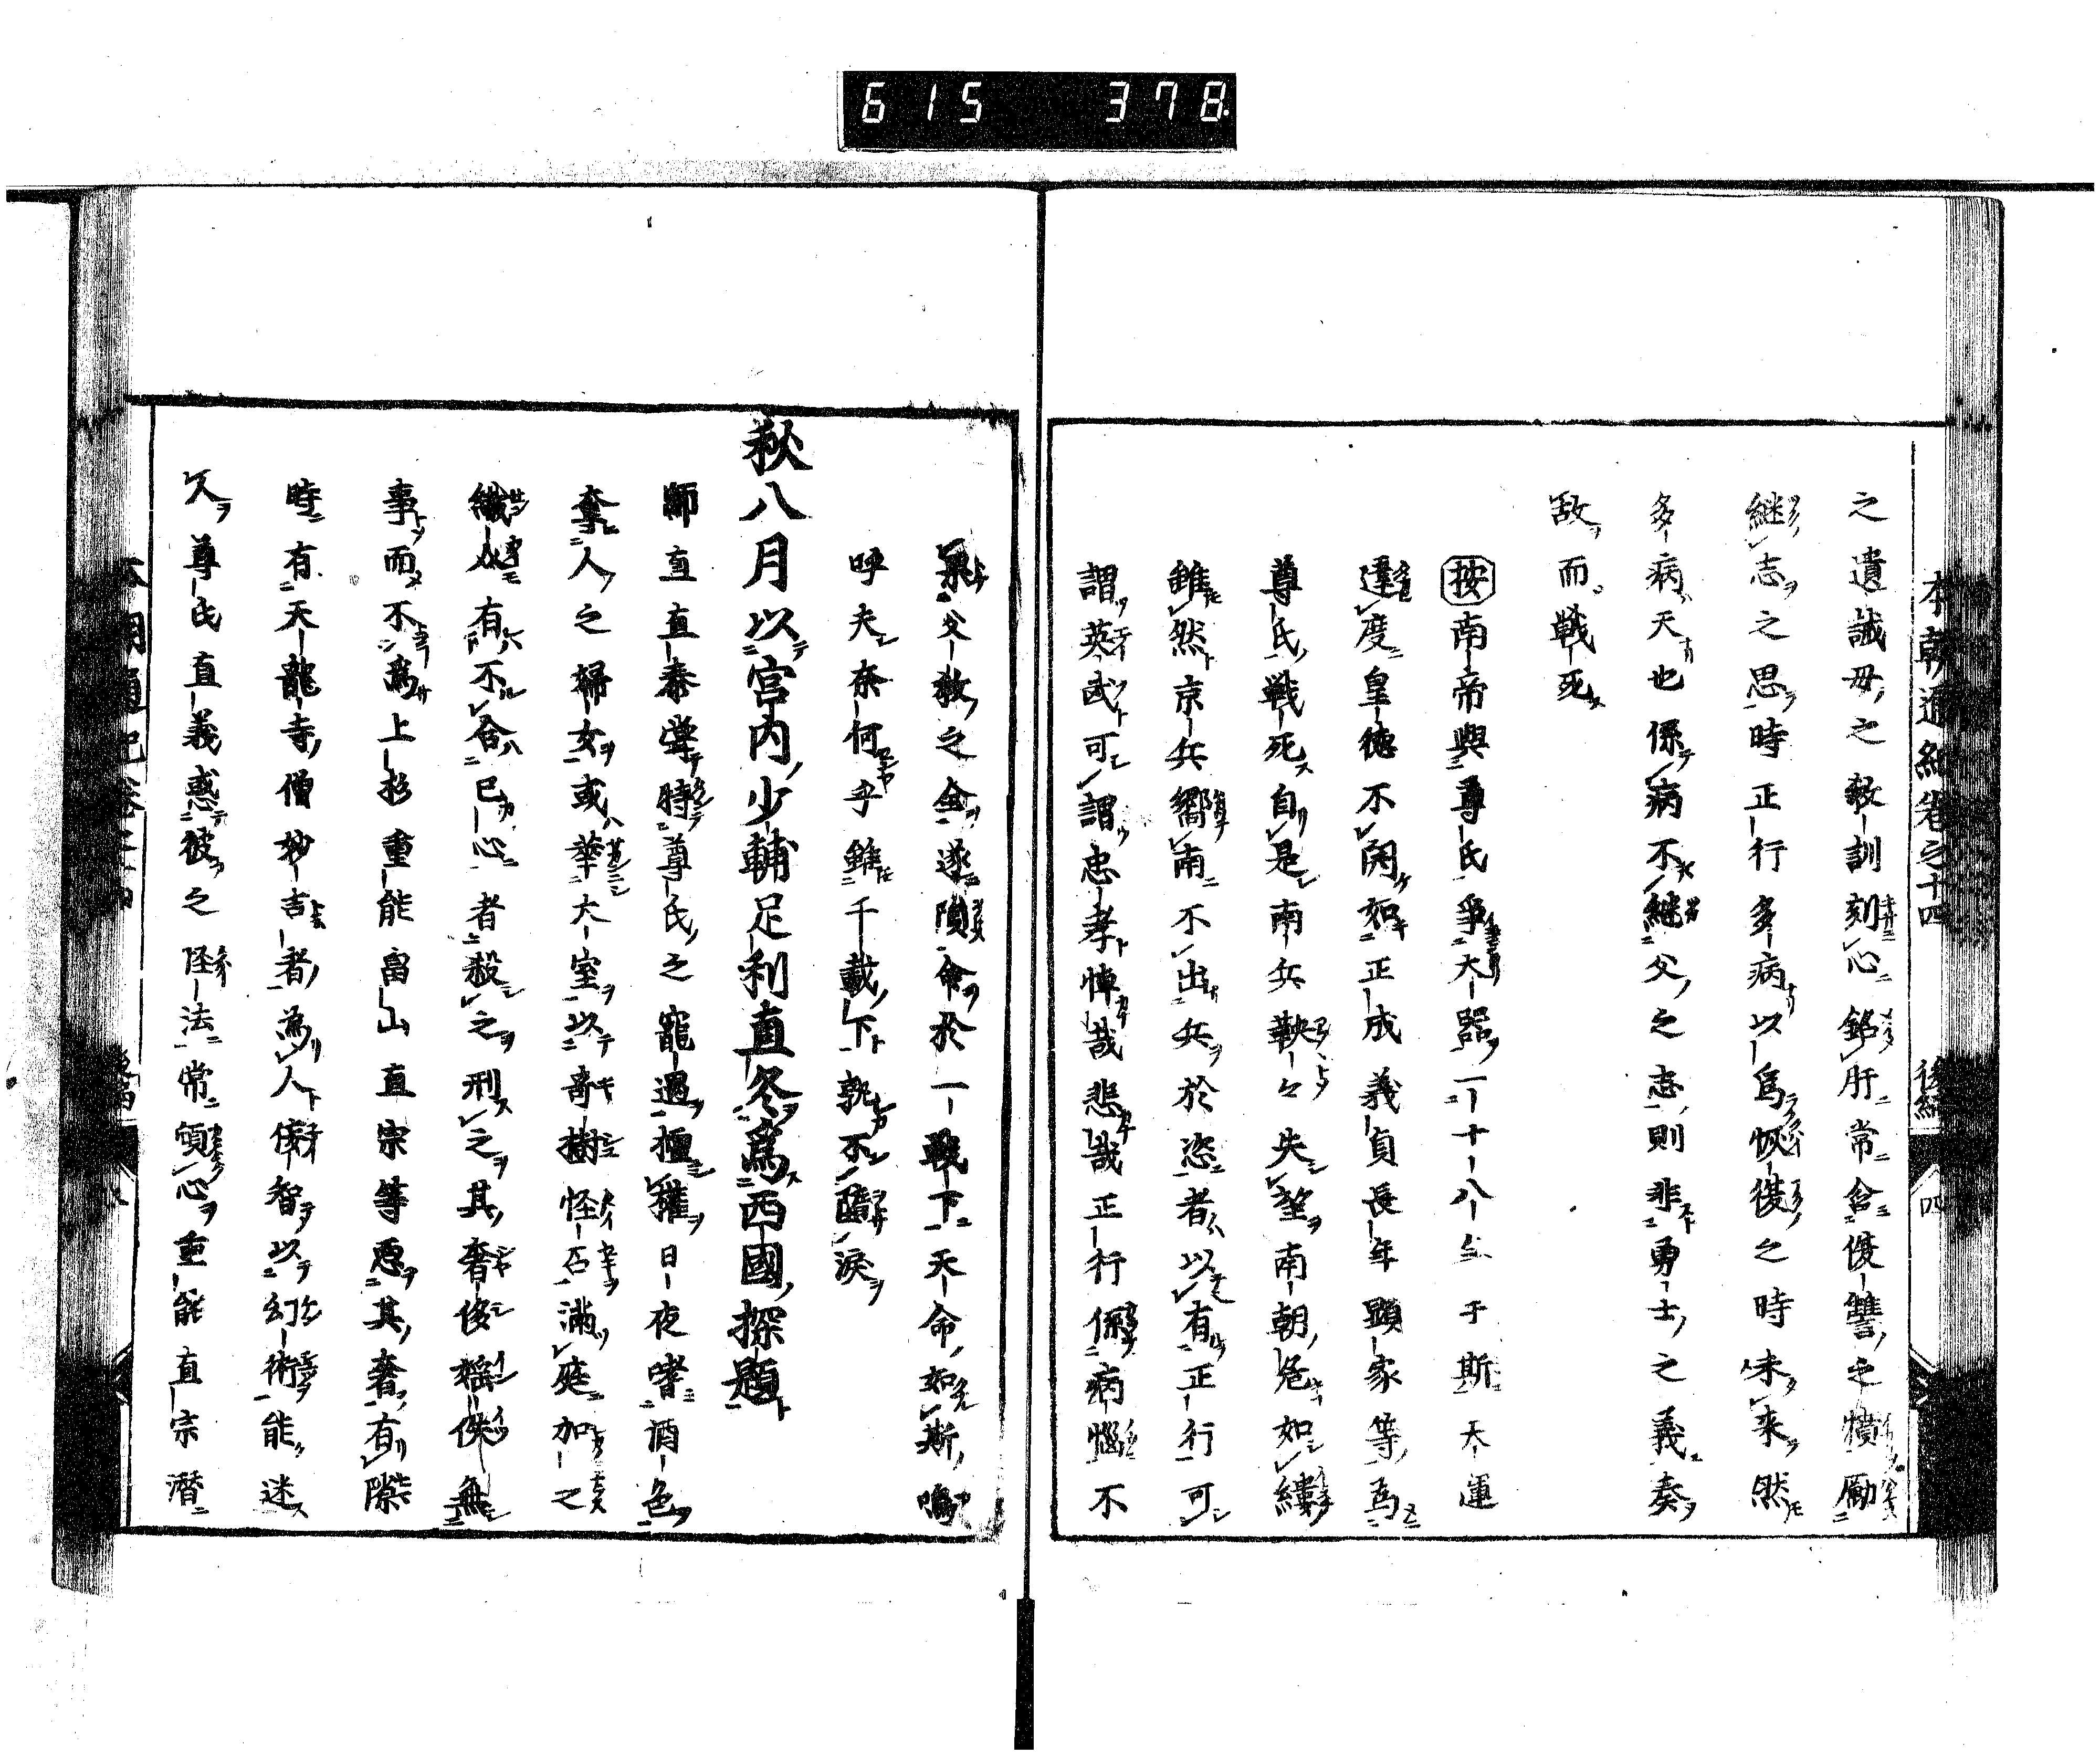 615 378
本朝通紀卷之十四 後編 四
之遺誡毋之敎訓刻心銘肝常含優讐之憤勵
継志之思時正行多病以爲恢復之時未来然
多病天也係病不継父之志則非勇士之義奏
敵而戰死
按南帝與尊氏爭大器一十八年于斯天運
違度皇德不関如正成義貞長年顕家等爲
尊氏戰死自是南兵鞅々失望南朝危如縷
雖然京兵嚮南不出兵於恣者以有正行可
謂英武可謂忠孝悼哉悲哉正行係病惱不
果父敎之全遂隕命於一戰下天命如斯嗚
呼夫奈何乎雖千載下孰不隨淚
秋八月以宮内少輔足利直冬爲西國探題
師直直泰掌時尊氏之寵過擅權日夜嗜酒色
奪人之婦女或華大室以奇樹怪石滿庭加之
纖人有不合己心者殺之刑之其奢侈婬佚無
事而不爲上杉重能畠山直宗等惡其奢有隙
時有天龍寺僧妙吉者爲人俊智以幻術能迷
人尊氏直義惑彼之怪法常傾心重能直宗潛